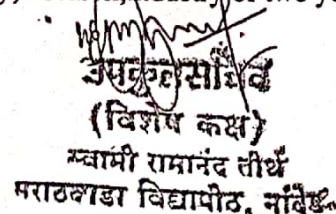 उपकुलसचिव
(विशेष कक्ष)
स्वामी रामानंद तीर्थ
मराठवाडा विद्यापीठ, नांदेड